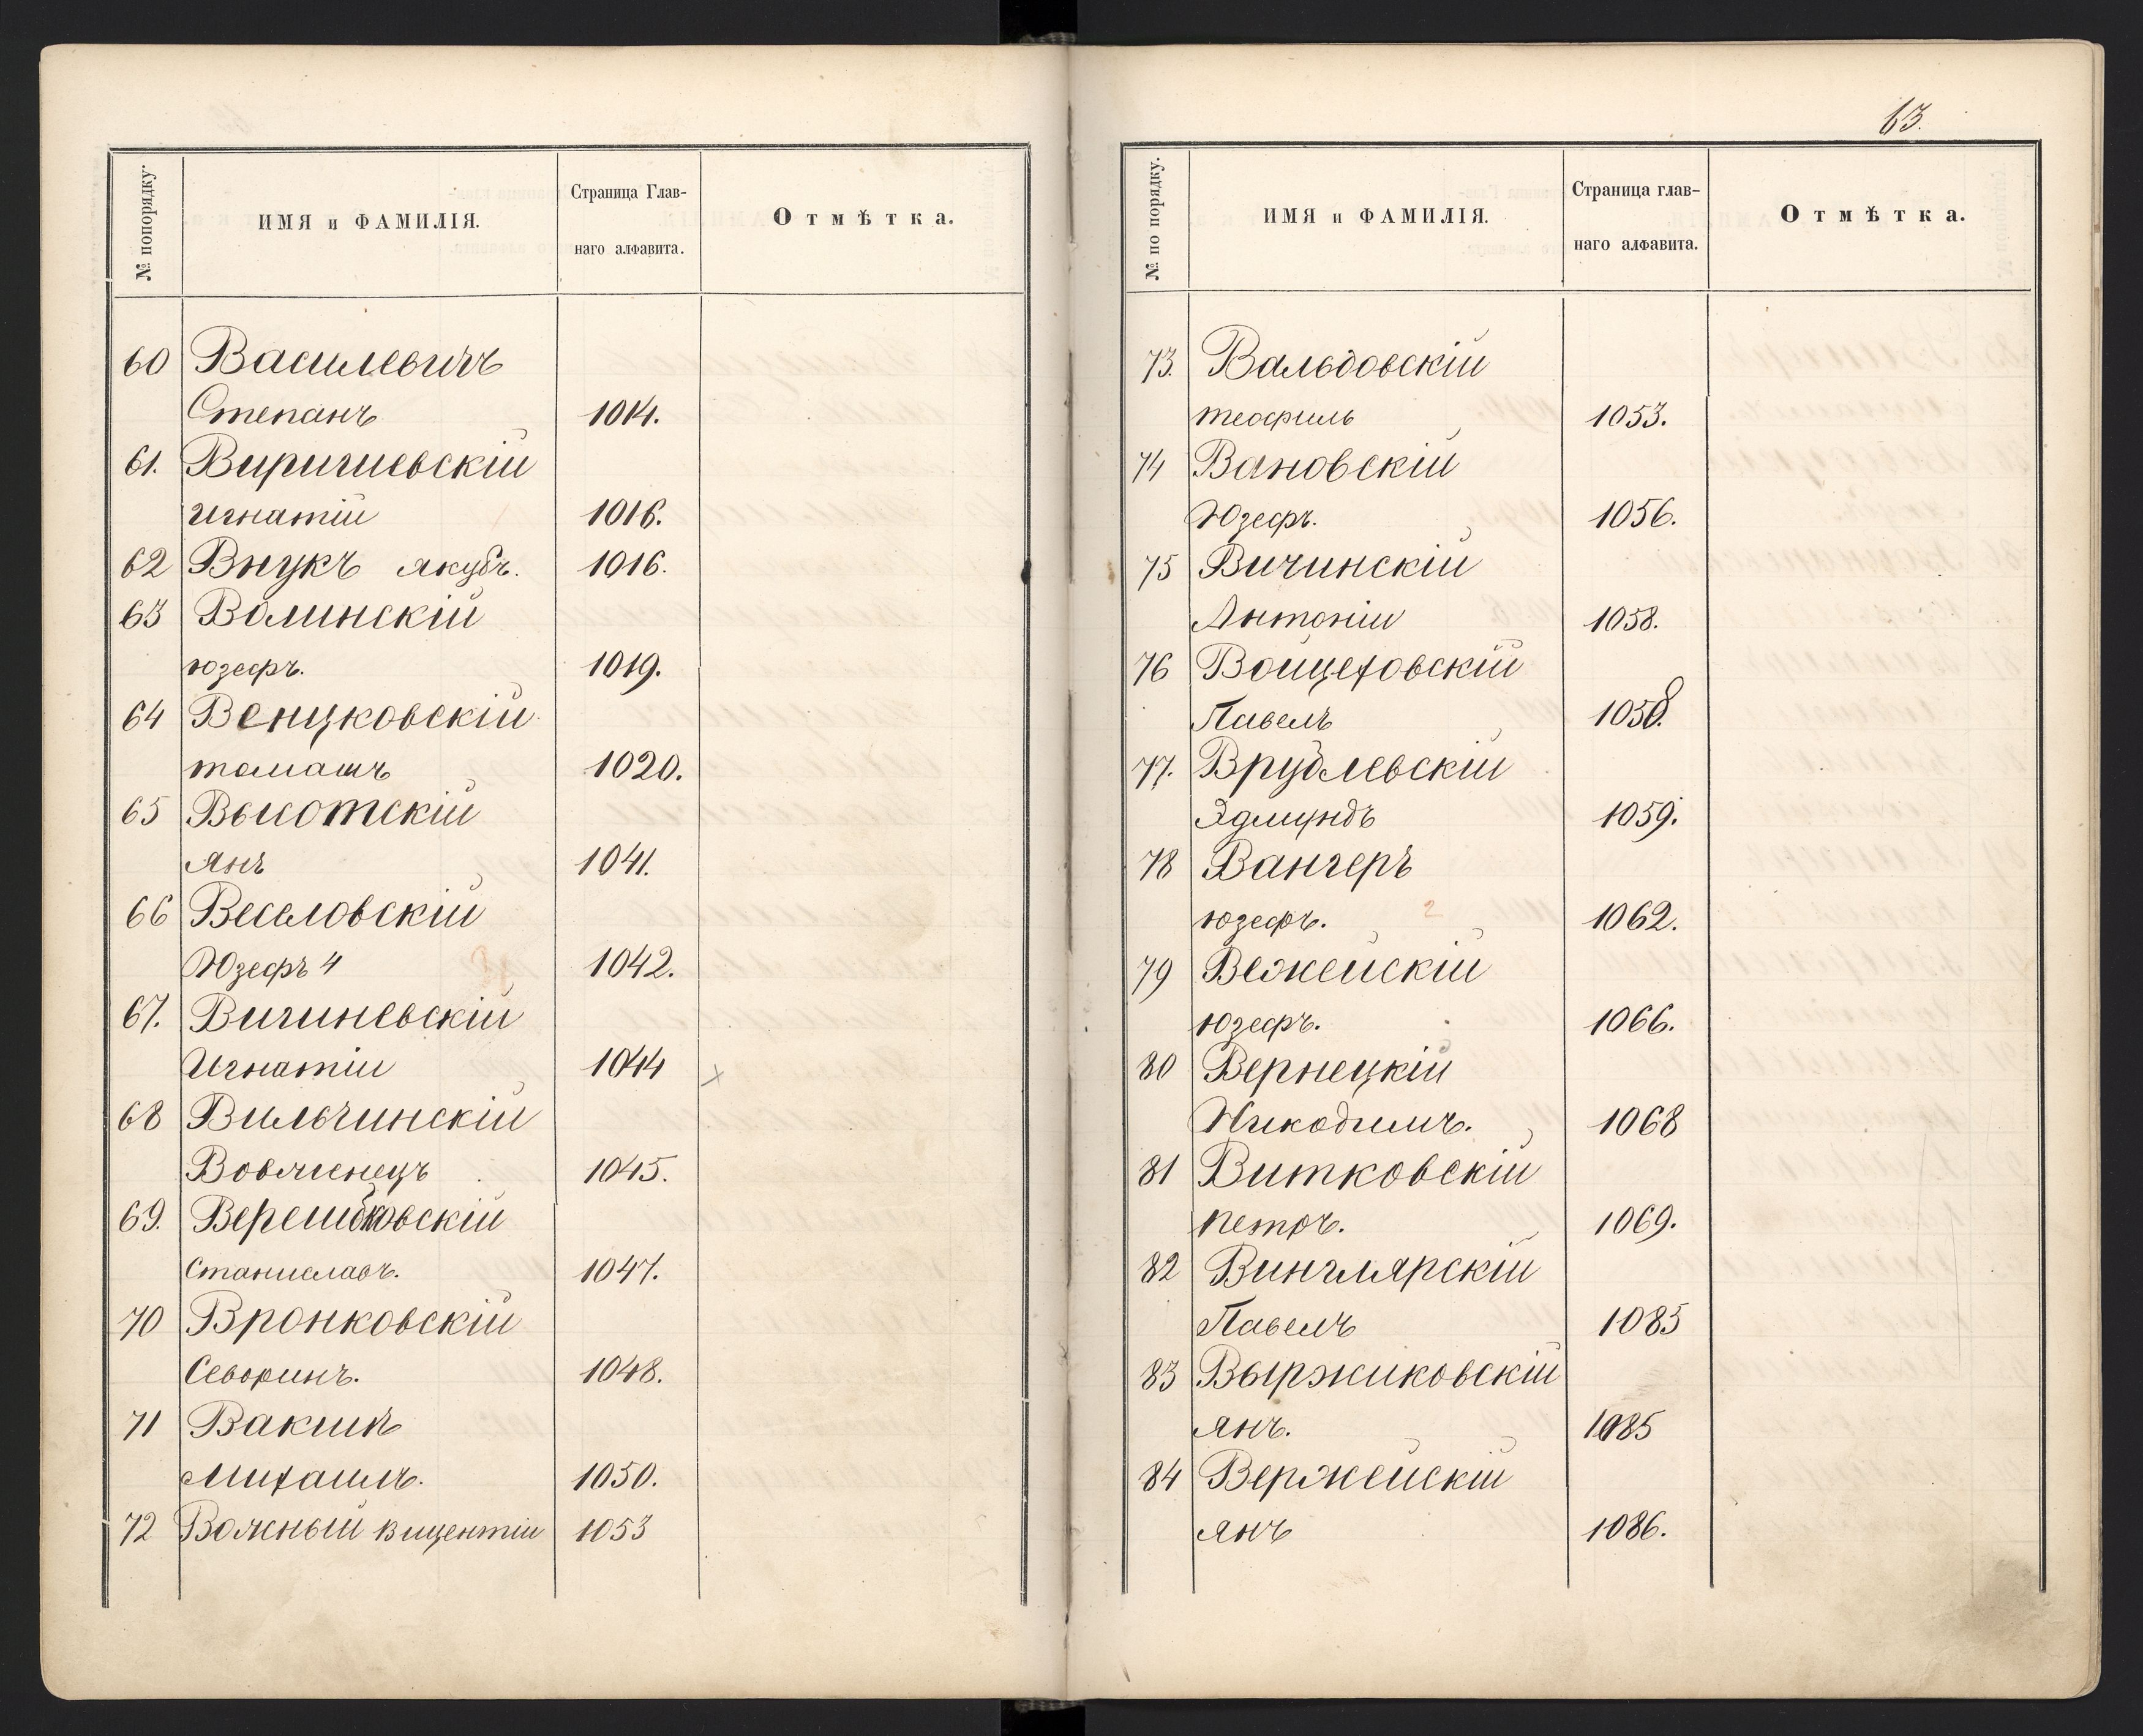 № попорядку.
ИМЯ и ФАМИЛІЯ.
Страница Глав-
наго алфавита.
Отмѣтка.
60 Василевичъ
Степанъ 1014.
61. Виричиевскій
Игнатій 1016.
62 Внукъ якубъ. 1016.
63 Волинскій
юзефъ. 1019.
64 Венцковскій
томашъ 1020.
65 Высотскій
янъ 1041.
66 Веселовскій
Юзефъ 4 1042.
67. Вигиневскій
Игнатій 1044
68 Вильчинскій
1045.
69.
Станиславъ. 1047.
70 Вронковскій
Северинъ. 1048.
71
Михаилъ. 1050.
72 Возный вицентій 1053
63.
№ по порядку.
ИМЯ и ФАМИЛІЯ.
Страница глав-
наго алфавита.
Отмѣтка.
73. Вальдовскій
теофиль 1053.
74 Вановскій
Юзефъ. 1056.
75 Вичинскій
Антоній 1058.
76 Войцеховскій
Павелъ 1058.
77. Врублевскій
Эдмундъ 1059.
78 Вангеръ
юзефъ. 2 1062.
79 Вежейскій
юзефъ. 1066.
80 Вернецкій
Никодимъ. 1068
81 Витковскій
петръ. 1069.
82 Винглярскій
Павелъ 1085
83 Выржиковскій
янъ. 1085
84 Вержейскій
янъ 1086.